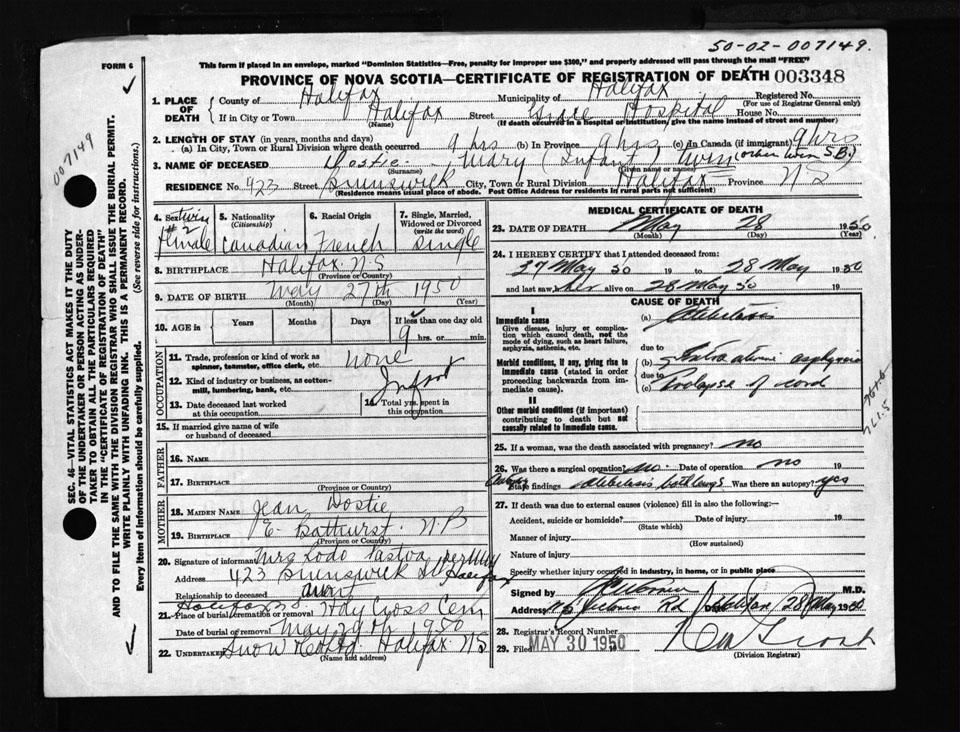 50-02-007149.
FORM 6
This form if placed in an envelope, marked "Dominion Statistics—Free, penalty for improper use $300," and properly addressed will pass through the mail "FREE"
PROVINCE OF NOVA SCOTIA—CERTIFICATE OF REGISTRATION OF DEATH 003348
007149
SEC. 46—VITAL STATISTICS ACT MAKES IT THE DUTY
OF THE UNDERTAKER OR PERSON ACTING AS UNDER-
TAKER TO OBTAIN ALL THE PARTICULARS REQUIRED
IN THE "CERTIFICATE OF REGISTRATION OF DEATH"
AND TO FILE THE SAME WITH THE DIVISION REGISTRAR, WHO SHALL ISSUE THE BURIAL PERMIT.
WRITE PLAINLY WITH UNFADING INK. THIS IS A PERMANENT RECORD.
Every item of information should be carefully supplied. (See reverse side for instructions.)
1. PLACE OF DEATH
County of Halifax Municipality of Halifax Registered No.
(For use of Registrar General only)
If in City or Town Halifax Street Grace Hospital House No.
(Name) (If death occurred in a hospital or institution, give the name instead of street and number)
2. LENGTH OF STAY (in years, months and days)
(a) In City, Town or Rural Division where death occurred 9 hrs (b) In Province 9 hrs (c) In Canada (if immigrant) 9 hrs
3. NAME OF DECEASED Dostie, Mary (Infant) Twin (other twin S.B.)
(Surname) (Given name or names)
RESIDENCE No. 423 Street Brunswick City, Town or Rural Division Halifax Province NS
(Residence means usual place of abode. Post Office Address for residents in rural parts not sufficient)
4. Sex twin #2 Female
5. Nationality (Citizenship) Canadian
6. Racial Origin French
7. Single, Married, Widowed or Divorced (write the word) Single
8. BIRTHPLACE Halifax N.S
(Province or Country)
9. DATE OF BIRTH May 27th 1950
(Month) (Day) (Year)
10. AGE in Years Months Days If less than one day old
9 hrs. or min.
OCCUPATION
11. Trade, profession or kind of work as spinner, teamster, office clerk, etc. none
12. Kind of industry or business, as cotton-mill, lumbering, bank, etc. Infant
13. Date deceased last worked at this occupation
14. Total yrs. spent in this occupation
15. If married give name of wife or husband of deceased
FATHER
16. NAME
17. BIRTHPLACE
(Province or Country)
MOTHER
18. MAIDEN NAME Jean Dostie
19. BIRTHPLACE E. Bathurst. N.B
(Province or Country)
20. Signature of informant Mrs
Address 423 Brunswick St Halifax
Relationship to deceased aunt
Halifax
21. Place of burial, cremation or removal Holy Cross Cem
Date of burial or removal May 29th 1950
22. UNDERTAKER Snow Halifax NS
(Name and address)
MEDICAL CERTIFICATE OF DEATH
23. DATE OF DEATH May 28 1950
(Month) (Day) (Year)
24. I HEREBY CERTIFY that I attended deceased from
27 May 50 19 to 28 May 1950
and last saw her alive on 28 May 50 19
CAUSE OF DEATH
I
Immediate cause
Give disease, injury or complication which caused death, not the mode of dying, such as heart failure, asphyxia, asthenia, etc.
(a) Atelectasis
due to
Morbid conditions, if any, giving rise to immediate cause (stated in order proceeding backwards from immediate cause).
(b) Intrauterine asphyxia
due to
(c) Prolapse of cord
II
Other morbid conditions (if important) contributing to death but not causally related to immediate cause.
761.5
25. If a woman, was the death associated with pregnancy? no
26. Was there a surgical operation? no. Date of operation no 19
Autopsy
State findings atelectasis both lungs Was there an autopsy? yes
27. If death was due to external causes (violence) fill in also the following:
Accident, suicide or homicide? Date of injury 19
(State which)
Manner of injury
(How sustained)
Nature of injury
Specify whether injury occurred in industry, in home, or in public place
Signed by M.D.
Address Rd Date 28 May 1950
28. Registrar's Record Number
29. Filed MAY 30 1950
(Division Registrar)